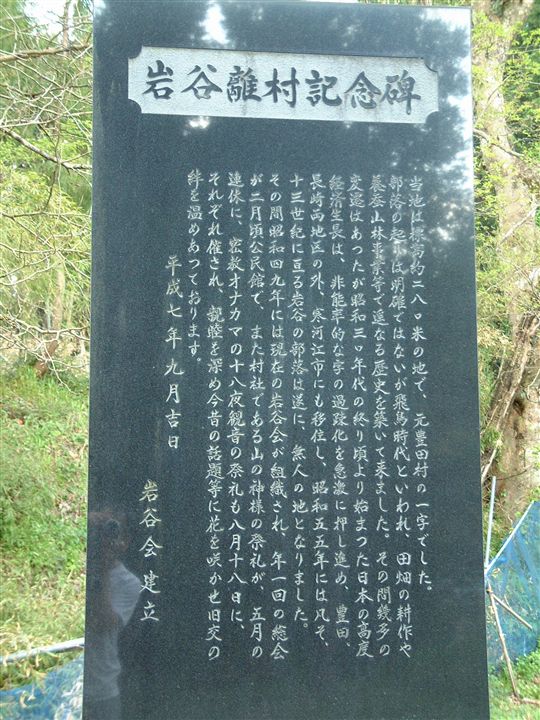 岩谷離村記念碑
当地は標高約二八〇米の地で、元豊田村の一字でした。
部落の起りは明確ではないが飛鳥時代といわれ、田畑の耕作や
養蚕山林事業等で遥なる歴史を築いて来ました。その間幾多の
変遷はあつたが昭和三〇年代の終り頃より始まつた日本の高度
経済生長は、非能率的な字の過疎化を急激に押し進め、豊田、
長崎両地区の外、寒河江市にも移住し、昭和五五年には凡そ、
十三世紀に亘る岩谷の部落は遂に、無人の地となりました。
その間昭和四九年には現在の岩谷会が組織され、年一回の総会
が二月頃公民館で、また村社である山の神様の祭礼が、五月の
連休に、密教オナカマの十八夜観音の祭礼も八月十八日に、
それぞれ催され、親睦を深め今昔の話題等に花を咲かせ旧交の
絆を温めあつております。
平成七年九月吉日
岩谷会建立